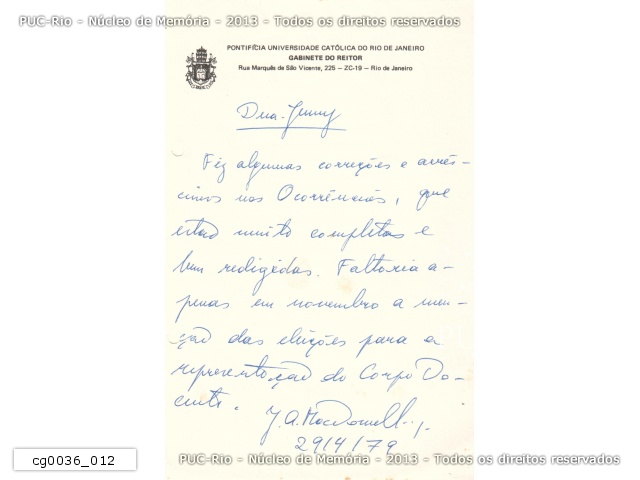 PUC-Rio - Núcleo de Memória - 2013 - Todos os direitos reservados
PONTIFÍCIA UNIVERSIDADE CATÓLICA DO RIO DE JANEIRO
GABINETE DO REITOR
Rua Marquês de São Vicente, 225 – ZC-19 – Rio de Janeiro
Dna. Jenny
Fiz algumas correções e acrés-
cimos nas Ocorrências, que
estão muito completas e
bem redigidas. Faltaria a-
penas em novembro a men-
ção das eleições para a
representação do Corpo Do-
cente.
J.A. MacDowell s.j.
29/4/79
cg0036_012
PUC-Rio - Núcleo de Memória - 2013 - Todos os direitos reservados